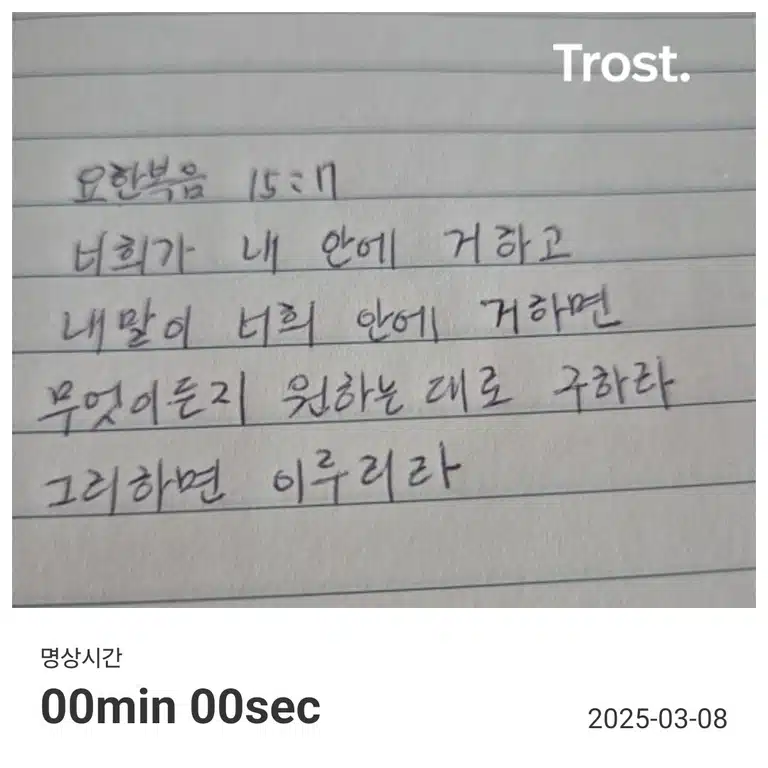 Trost.
요한복음 15:7
너희가 내 안에 거하고
내 말이 너희 안에 거하면
무엇이든지 원하는 대로 구하라
그리하면 이루리라
명상시간
00min 00sec
2025-03-08